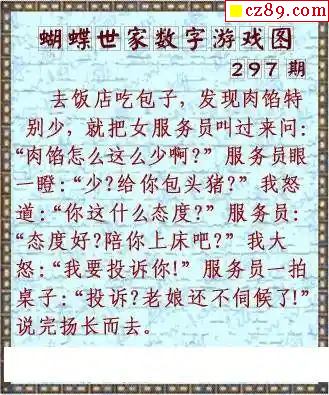 cz89.com
蝴蝶世家数字游戏图
297期
去饭店吃包子，发现肉馅特
别少，就把女服务员叫过来问：
“肉馅怎么这么少啊？”服务员眼
一瞪：“少？给你包头猪？”我怒
道：“你这什么态度？”服务员：
“态度好？陪你上床吧？”我大
怒：“我要投诉你！”服务员一拍
桌子：“投诉？老娘还不伺候了！”
说完扬长而去。